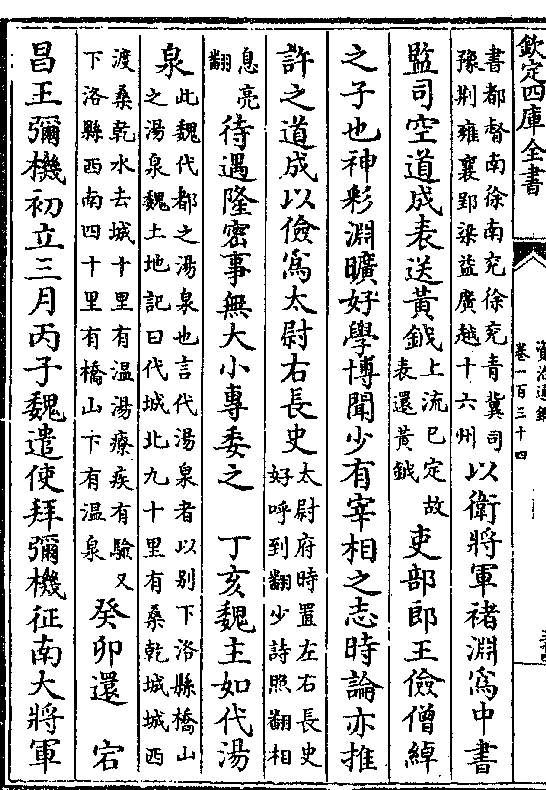 欽定四庫全書
資治通鑑
卷一百三十四
書都督南徐南兖徐兖青冀司
豫荆雍襄郢梁益廣越十六州
以衛將軍褚淵為中書
監司空道成表送黃鉞
上流已定故
表還黃鉞
吏部郎王儉僧綽
之子也神彩淵曠好學博聞少有宰相之志時論亦推
許之道成以儉為太尉右長史
太尉府時置左右長史
好呼到翻少詩照翻相
息亮
翻
待遇隆密事無大小專委之 丁亥魏主如代湯
泉
此魏代都之湯泉也言代湯泉者以别下洛縣橋山
之湯泉魏土地記曰代城北九十里有桑乾城城西
渡桑乾水去城十里有温湯療疾有驗又
下洛縣西南四十里有橋山下有温泉
癸卯還 宕
昌王彌機初立三月丙子魏遣使拜彌機征南大將軍